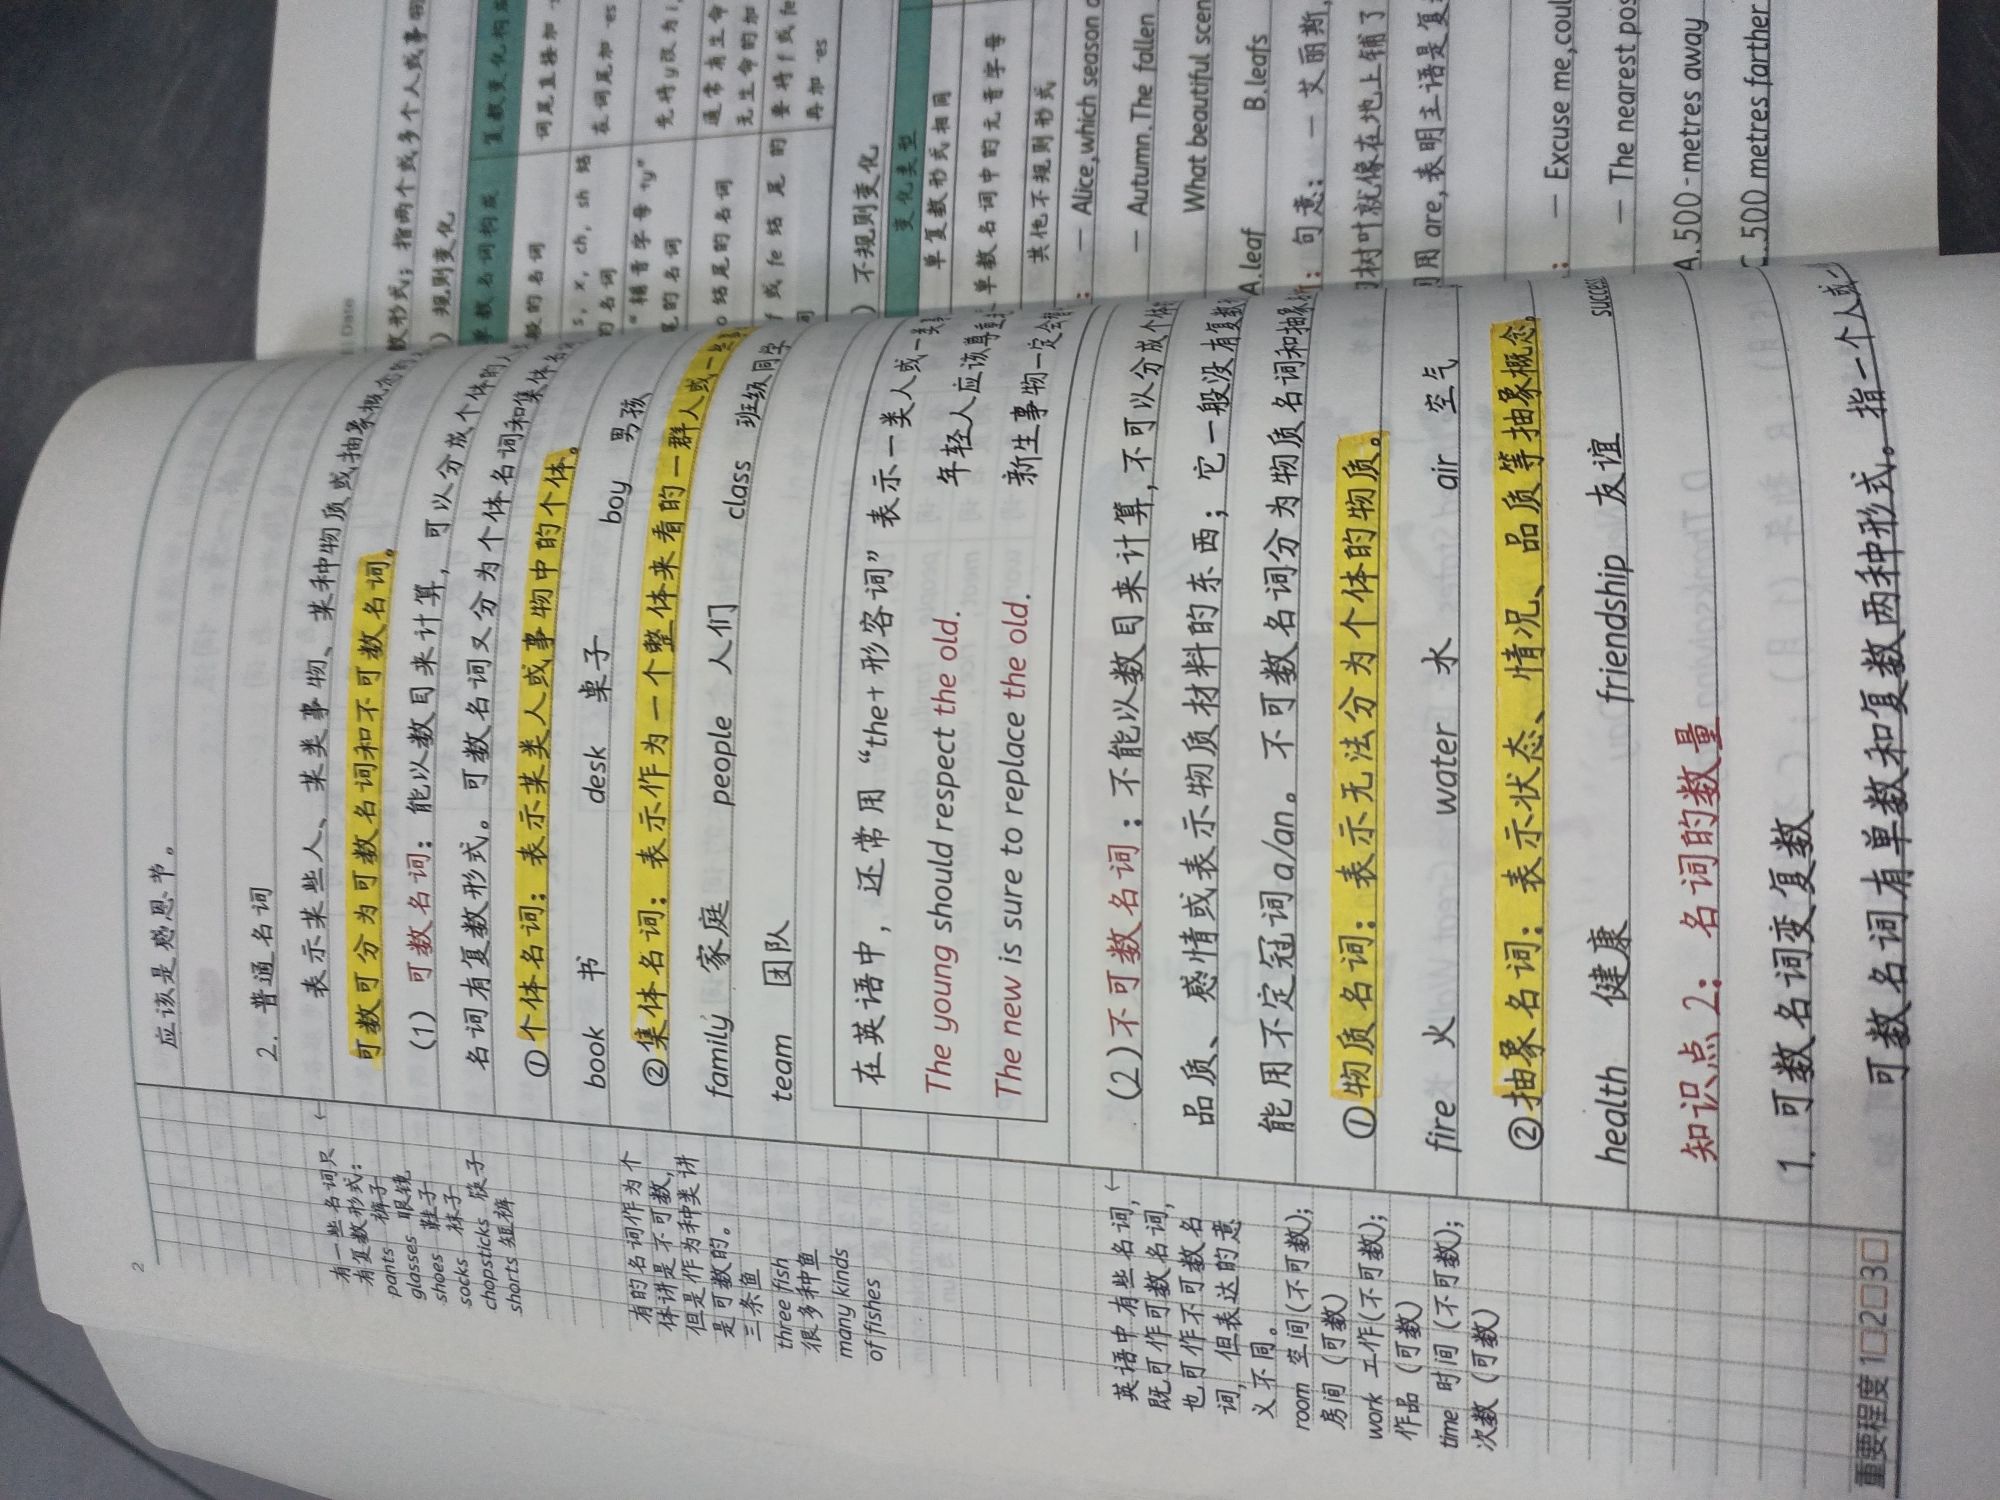 2
应该是感恩节。
2. 普通名词
表示某些人、某类事物、某种物质或抽象概念的
可数可分为可数名词和不可数名词。
(1) 可数名词：能以数目来计算，可以分成个体的
名词有复数形式。可数名词又分为个体名词和集体名
①个体名词：表示某类人或事物中的个体。
book 书 desk 桌子 boy 男孩
②集体名词：表示作为一个整体来看的一群人或一些
family 家庭 people 人们 class 班级同学
team 团队
在英语中，还常用“the+形容词”表示一类人或一类
The young should respect the old. 年轻人应该尊重
The new is sure to replace the old. 新生事物一定会
(2)不可数名词：不能以数目来计算，不可以分成个体
品质、感情或表示物质材料的东西；它一般没有复数
能用不定冠词a/an。不可数名词分为物质名词和抽象
①物质名词：表示无法分为个体的物质。
fire 火 water 水 air 空气
②抽象名词：表示状态、情况、品质等抽象概念。
health 健康 friendship 友谊 success
知识点 2：名词的数量
1. 可数名词变复数
可数名词有单数和复数两种形式。指一个人或
有一些名词只
有复数形式：
pants 裤子
glasses 眼镜
shoes 鞋子
socks 袜子
chopsticks 筷子
shorts 短裤
有的名词作为个
体讲是不可数，
但是作为种类讲
是可数的。
三条鱼
three fish
很多种鱼
many kinds
of fishes
英语中有些名词，
既可作可数名词，
也可作不可数名
词，但表达的意
义不同。
room 空间(不可数)；
房间（可数）
work 工作(不可数)；
作品（可数）
time 时间(不可数)；
次数（可数）
重要程度 1□2□3□
Date
数形式；指两个或多个人或事物
）规则变化
单数名词构成 复数变化构成
般的名词 词尾直接加
s, x, ch, sh 结 在词尾加 -es
的名词
“辅音字母+y” 先将y改为i,
尾的名词
o 结尾的名词 通常有生命
无生命的加
f 或 fe 结尾的 要将f或fe
词 再加 -es
）不规则变化
变化类型
单复数形式相同
单数名词中的元音字母
其他不规则形式
：— Alice,which season
— Autumn.The fallen
What beautiful scen
A.leaf B.leafs
：句意：— 艾丽斯,
树叶就像在地上铺了
用 are,表明主语是复
：— Excuse me,coul
— The nearest pos
A.500-metres away
C.500 metres farther